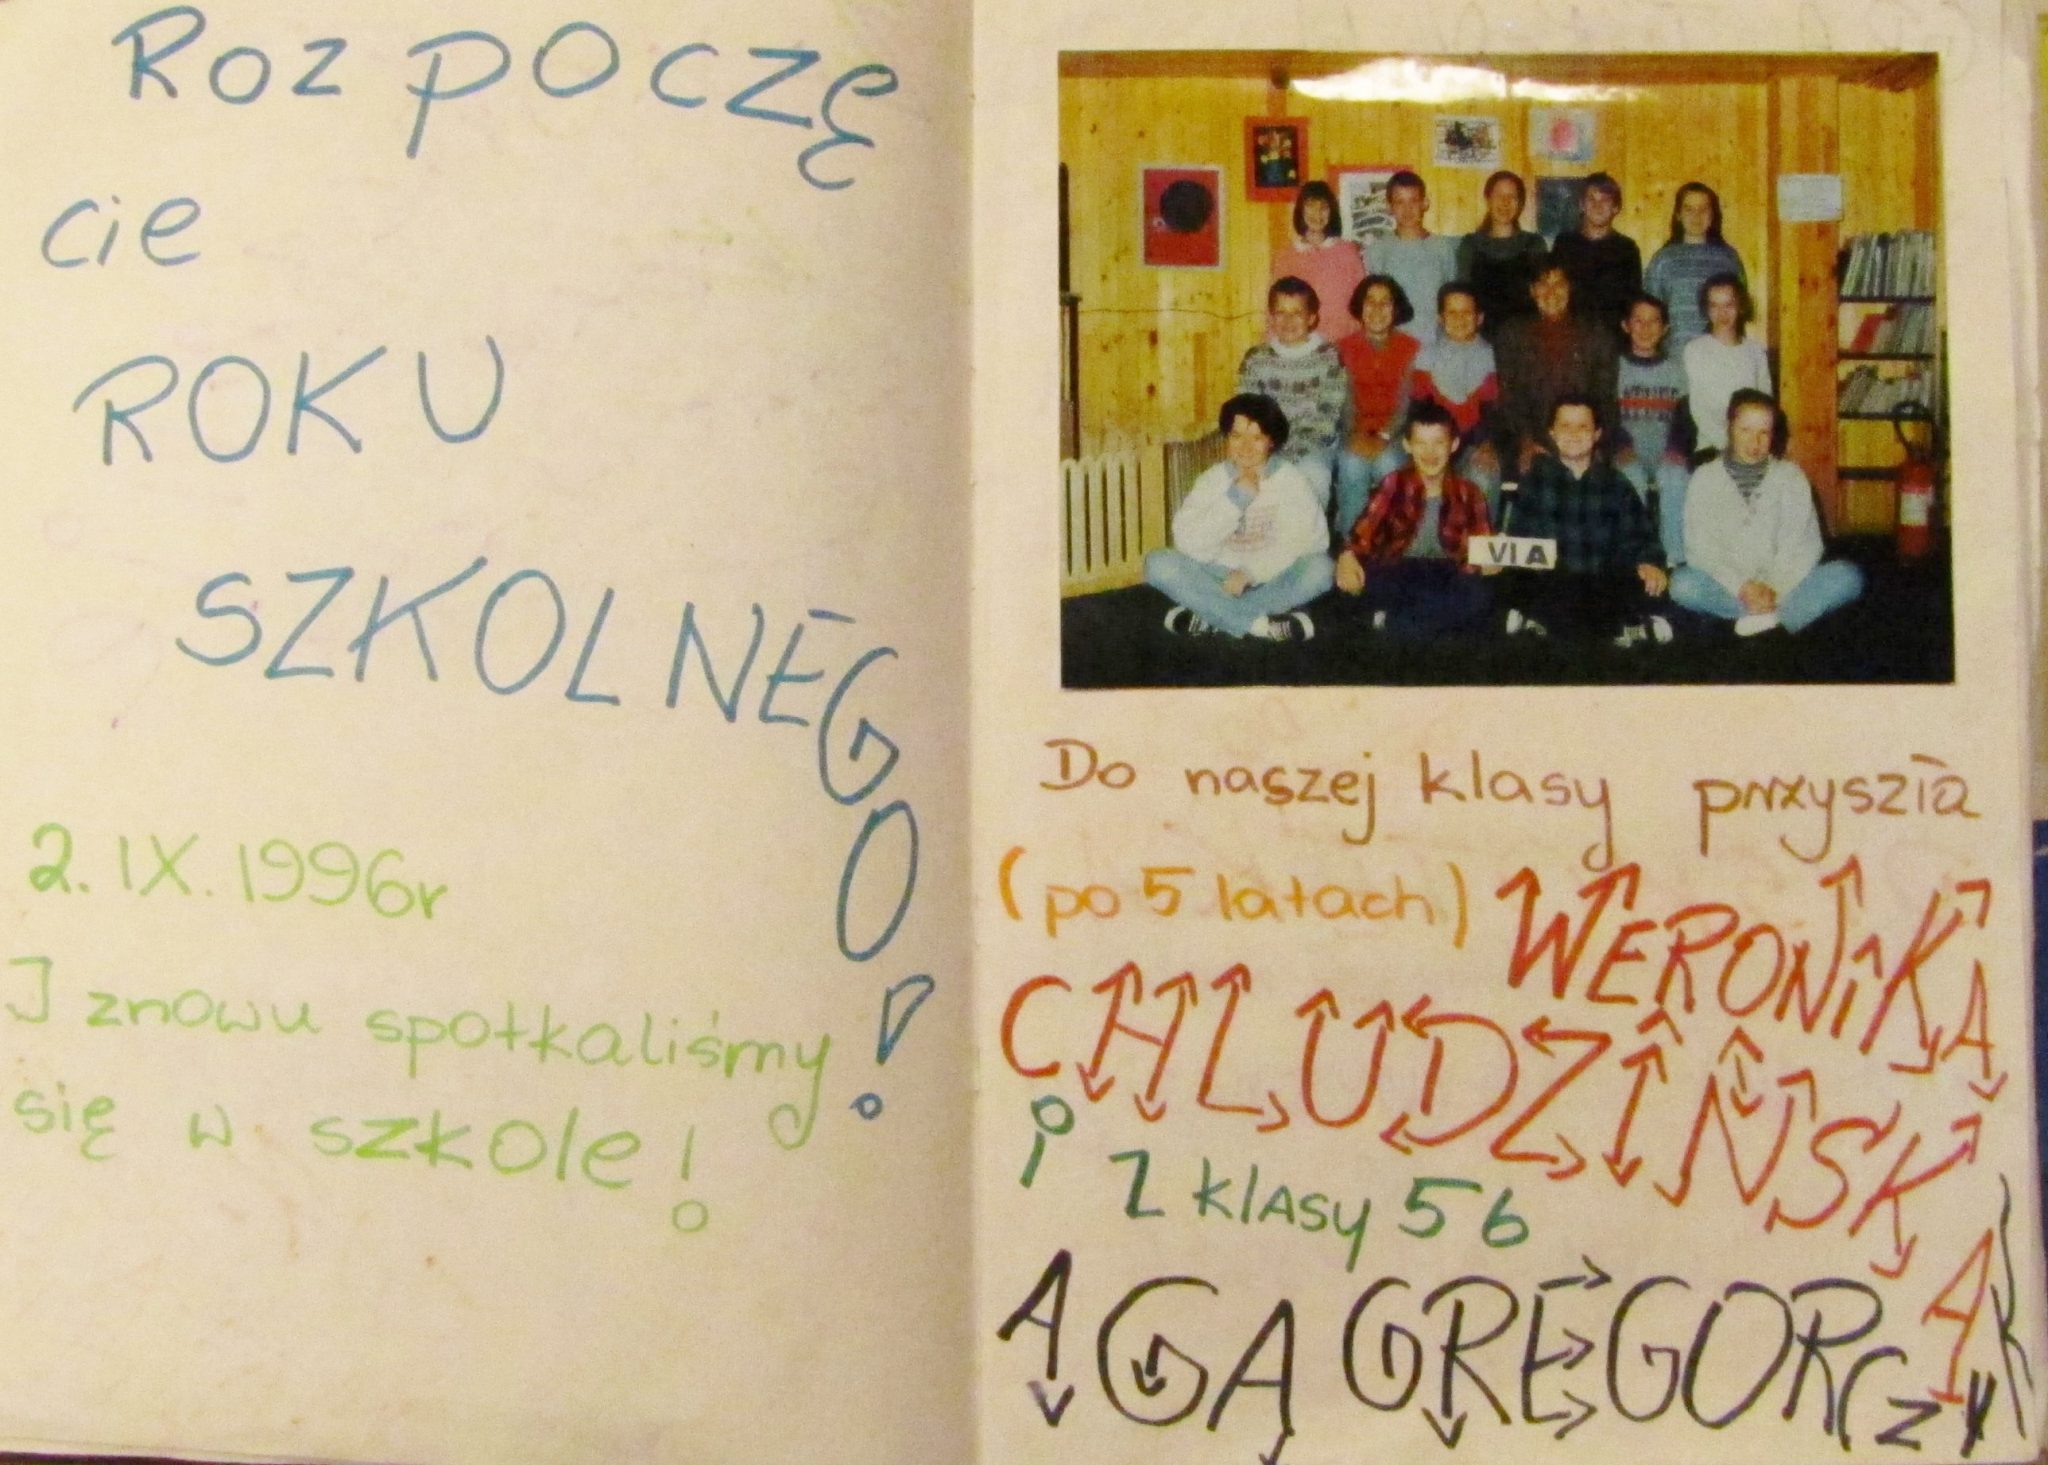 ROZPOCZĘ
cie
ROKU
SZKOLNEGO!
2. IX. 1996r
I znowu spotkaliśmy
się w szkole!
VI A
Do naszej klasy przyszła
(po 5 latach) WERONIKA
CHLUDZIŃSKA
i z klasy 5b
AGA GREGORCZYK